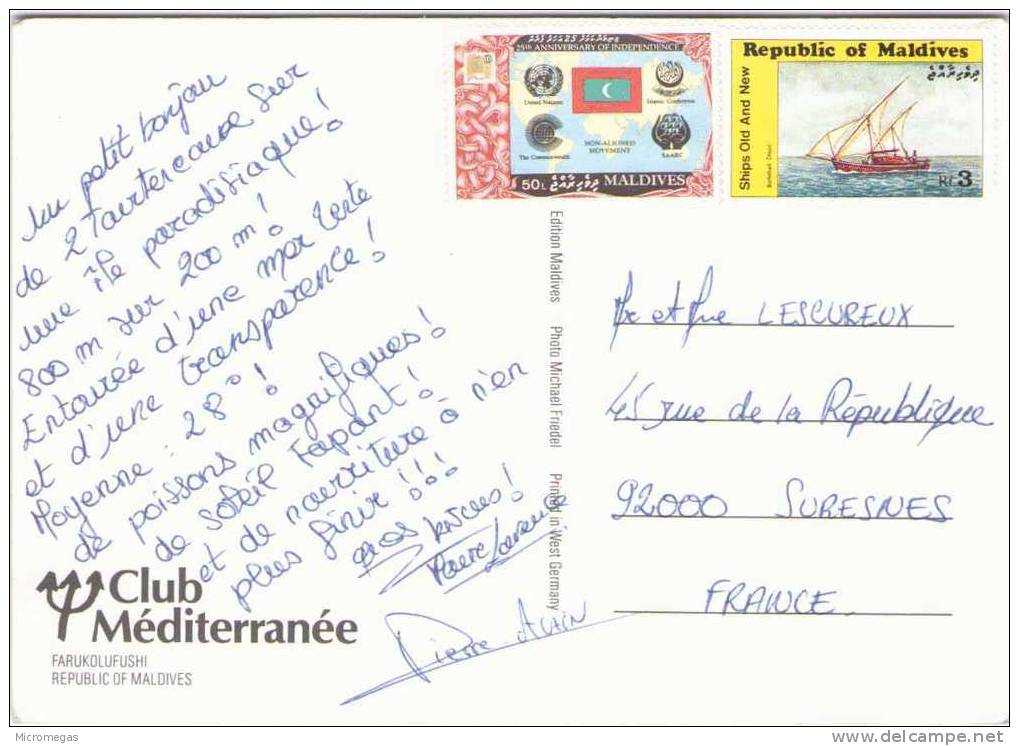 Un petit bonjour
de 2 Tourtereaux sur
une île paradisiaque!
800 m sur 200 m!
Entourée d'une mer verte
et d'une transparence!
Moyenne : 28°!
de poissons magnifiques!
de soleil Tapant!
et de nourriture à n'en
plus finir!!!
Gros bisous!
Laurence
Pierre Alain
Club
Méditerranée
FARUKOLUFUSHI
REPUBLIC OF MALDIVES
25th ANNIVERSARY OF INDEPENDENCE
United Nations
Islamic Conference
The Commonwealth
NON-ALIGNED
MOVEMENT
SAARC
50 L
ދިވެހިރާއްޖެ MALDIVES
Republic of Maldives
ދިވެހިރާއްޖެ
Ships Old And New
Rf 3
Edition Maldives Photo Michael Friedel Printed in West Germany
Mr et Mme LESCUREUX
45 rue de la République
92000 SURESNES
FRANCE.
Micromegas
www.delcampe.net